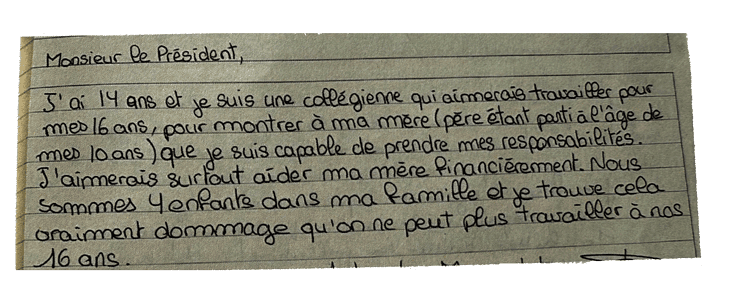 Monsieur le Président,
J'ai 14 ans et je suis une collégienne qui aimerais travailler pour
mes 16 ans, pour montrer à ma mère (père étant parti à l'âge de
mes 10 ans) que je suis capable de prendre mes responsabilités.
J'aimerais surtout aider ma mère financièrement. Nous
sommes 4 enfants dans ma famille et je trouve cela
vraiment dommage qu'on ne peut plus travailler à nos
16 ans.